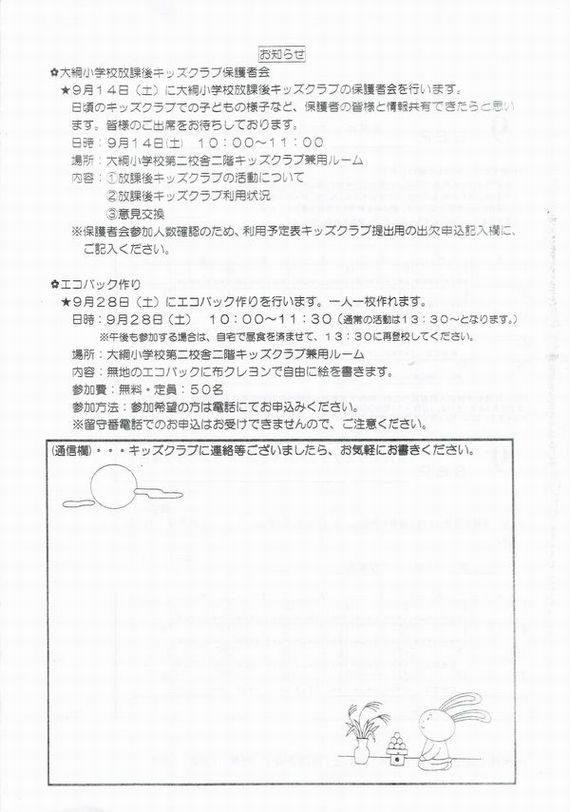 お知らせ
✿大綱小学校放課後キッズクラブ保護者会
★9月14日（土）に大綱小学校放課後キッズクラブの保護者会を行います。
日頃のキッズクラブでの子どもの様子など、保護者の皆様と情報共有できたらと思い
ます。皆様のご出席をお待ちしております。
日時：9月14日(土) 10：00～11：00
場所：大綱小学校第二校舎二階キッズクラブ兼用ルーム
内容：①放課後キッズクラブの活動について
②放課後キッズクラブ利用状況
③意見交換
※保護者会参加人数確認のため、利用予定表キッズクラブ提出用の出欠申込記入欄に、
ご記入ください。
✿エコバック作り
★9月28日（土）にエコバック作りを行います。一人一枚作れます。
日時：9月28日（土） 10：00～11：30（通常の活動は13：30～となります。）
※午後も参加する場合は、自宅で昼食を済ませて、13：30に再登校してください。
場所：大綱小学校第二校舎二階キッズクラブ兼用ルーム
内容：無地のエコバックに布クレヨンで自由に絵を書きます。
参加費：無料・定員：50名
参加方法：参加希望の方は電話にてお申込みください。
※留守番電話でのお申込はお受けできませんので、ご注意ください。
(通信欄)・・・キッズクラブに連絡等ございましたら、お気軽にお書きください。